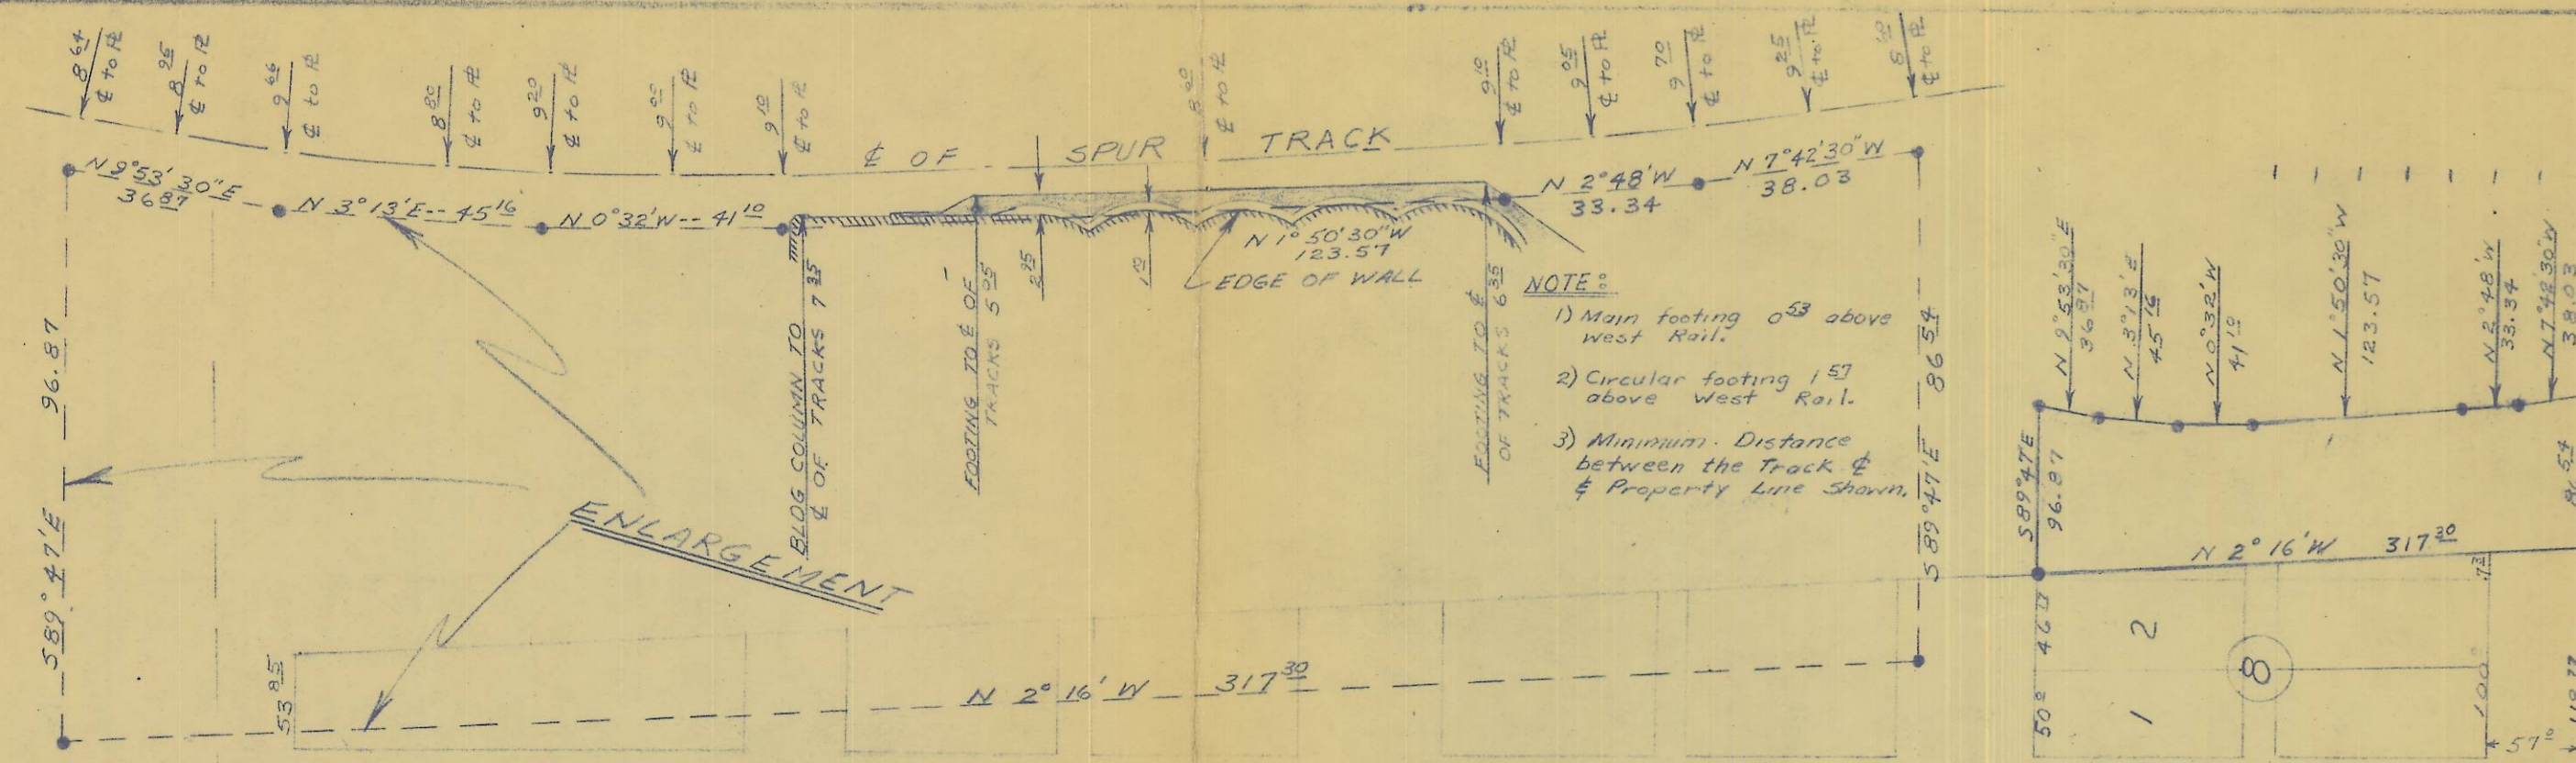 8 64
℄ to ⅊
8 95
℄ to ⅊
9 66
℄ to ⅊
8 80
℄ to ⅊
9 20
℄ to ⅊
9 00
℄ to ⅊
9 10
℄ to ⅊
℄ to ⅊
9 10
℄ to ⅊
9 05
℄ to ⅊
9 70
℄ to ⅊
9 25
℄ to ⅊
℄ to ⅊
℄ OF SPUR TRACK
N 9° 53' 30" E
36 87
N 3° 13' E -- 45 16
N 0° 32' W -- 41 10
N 1° 50' 30" W
123.57
EDGE OF WALL
N 2° 48' W
33.34
N 7° 42' 30" W
38.03
2 95
BLDG COLUMN TO
℄ OF TRACKS 7 35
FOOTING TO ℄ OF
TRACKS 5 05
FOOTING TO ℄
OF TRACKS 6 35
NOTE:
1) Main footing 0 53 above
West Rail.
2) Circular footing 1 57
above West Rail.
3) Minimum Distance
between the Track ℄
& Property Line Shown.
S 89° 47' E 96.87
S 89° 47' E 86 54
ENLARGEMENT
53 85
N 2° 16' W 317 30
N 9° 53' 30" E
36 87
N 3° 13' E
45 16
N 0° 32' W
41 10
N 1° 50' 30" W
123.57
N 2° 48' W
33.34
N 7° 42' 30" W
38.03
S 89° 47' E
96.87
N 2° 16' W 317 30
1 2
8
100
57 0